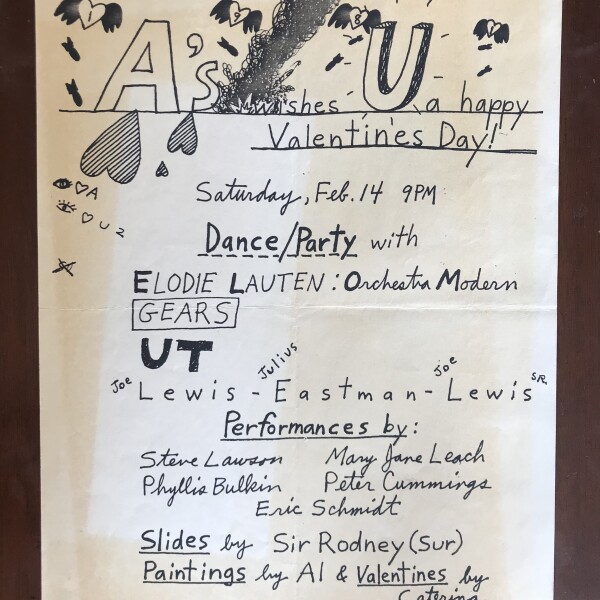 A's wishes U a happy
Valentine's Day!
A
U 2
Saturday, Feb. 14 9PM
Dance/Party with
ELODIE LAUTEN: Orchestra Modern
GEARS
UT
Joe Lewis - Julius Eastman - Joe Lewis SR.
Performances by:
Steve Lawson Mary Jane Leach
Phyllis Bulkin Peter Cummings
Eric Schmidt
Slides by Sir Rodney (Sur)
Paintings by Al & Valentines by